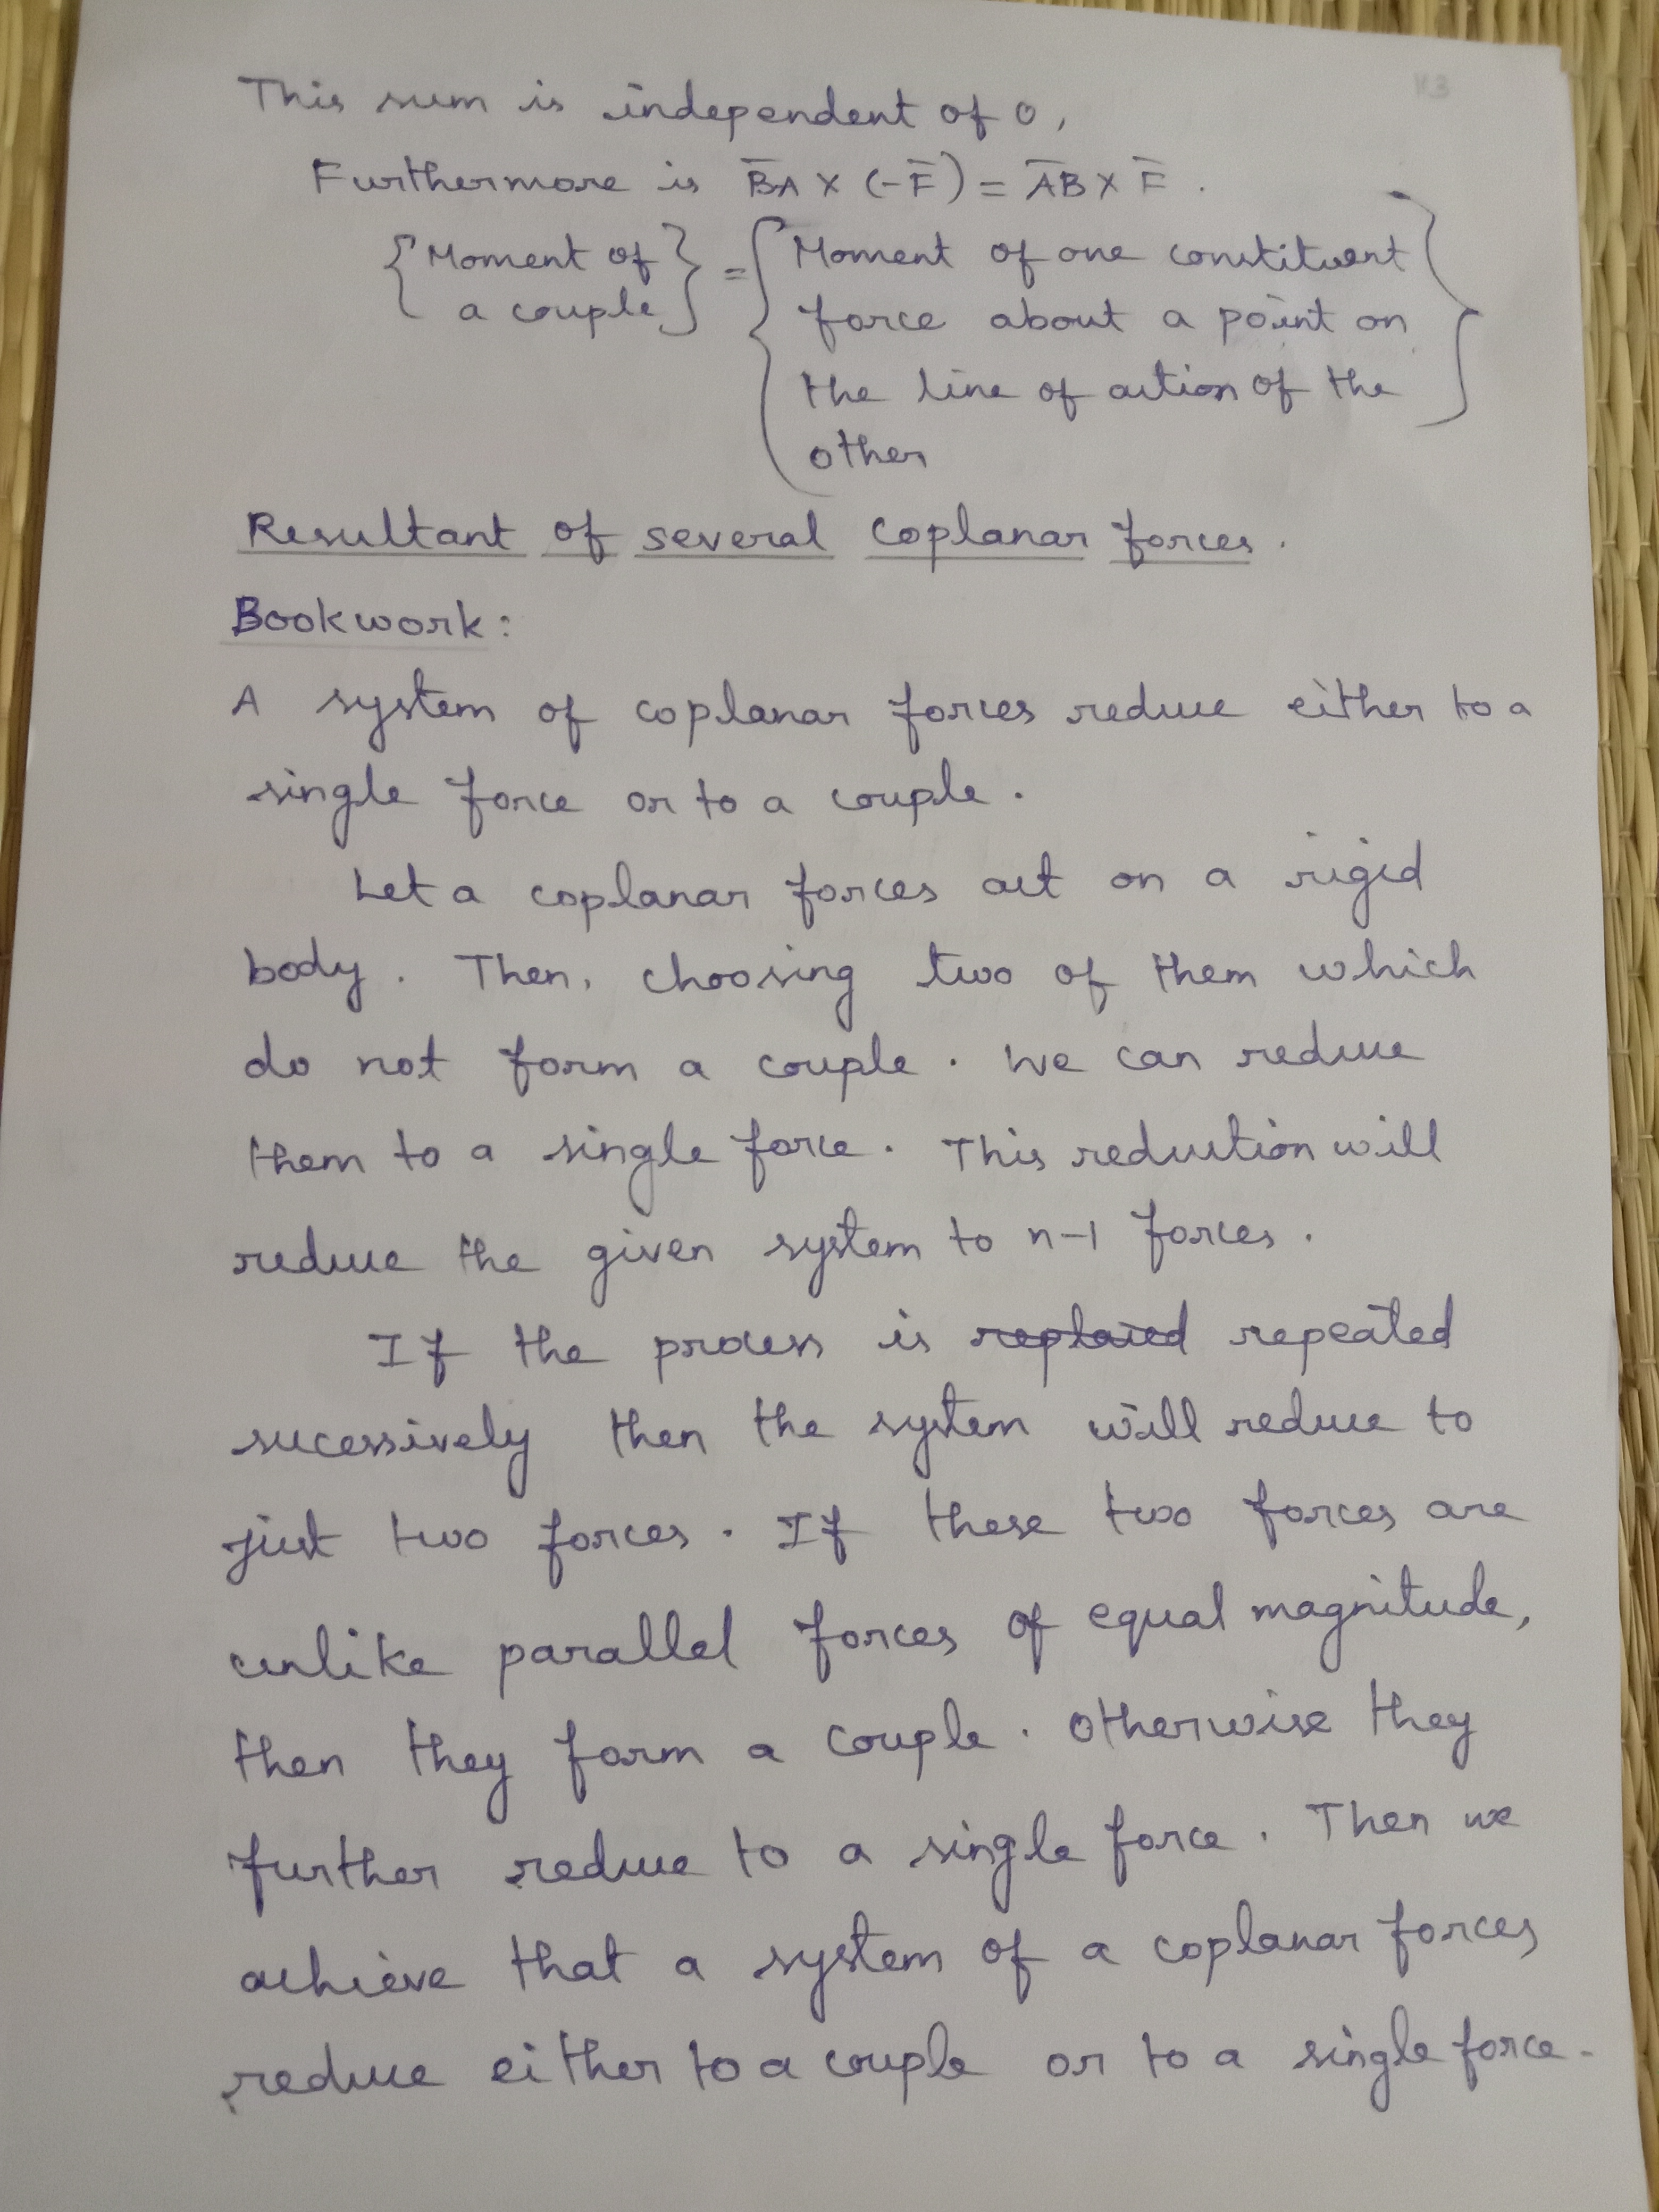 This sum is independent of O,
Furthermore is B̅A × (-F̅) = A̅B × F̅ .
{Moment of a couple} = {Moment of one constituent
force about a point on
the line of action of the
other}
Resultant of several coplanar forces.
Bookwork:
A system of coplanar forces reduce either to a
single force or to a couple.
Let a coplanar forces act on a rigid
body. Then, choosing two of them which
do not form a couple. We can reduce
them to a single force. This reduction will
reduce the given system to n-1 forces.
If the process is replaced repeated
sucessively then the system will reduce to
just two forces. If these two forces are
unlike parallel forces of equal magnitude,
then they form a couple. Otherwise they
further reduce to a single force. Then we
achieve that a system of a coplanar forces
reduce either to a couple or to a single force.